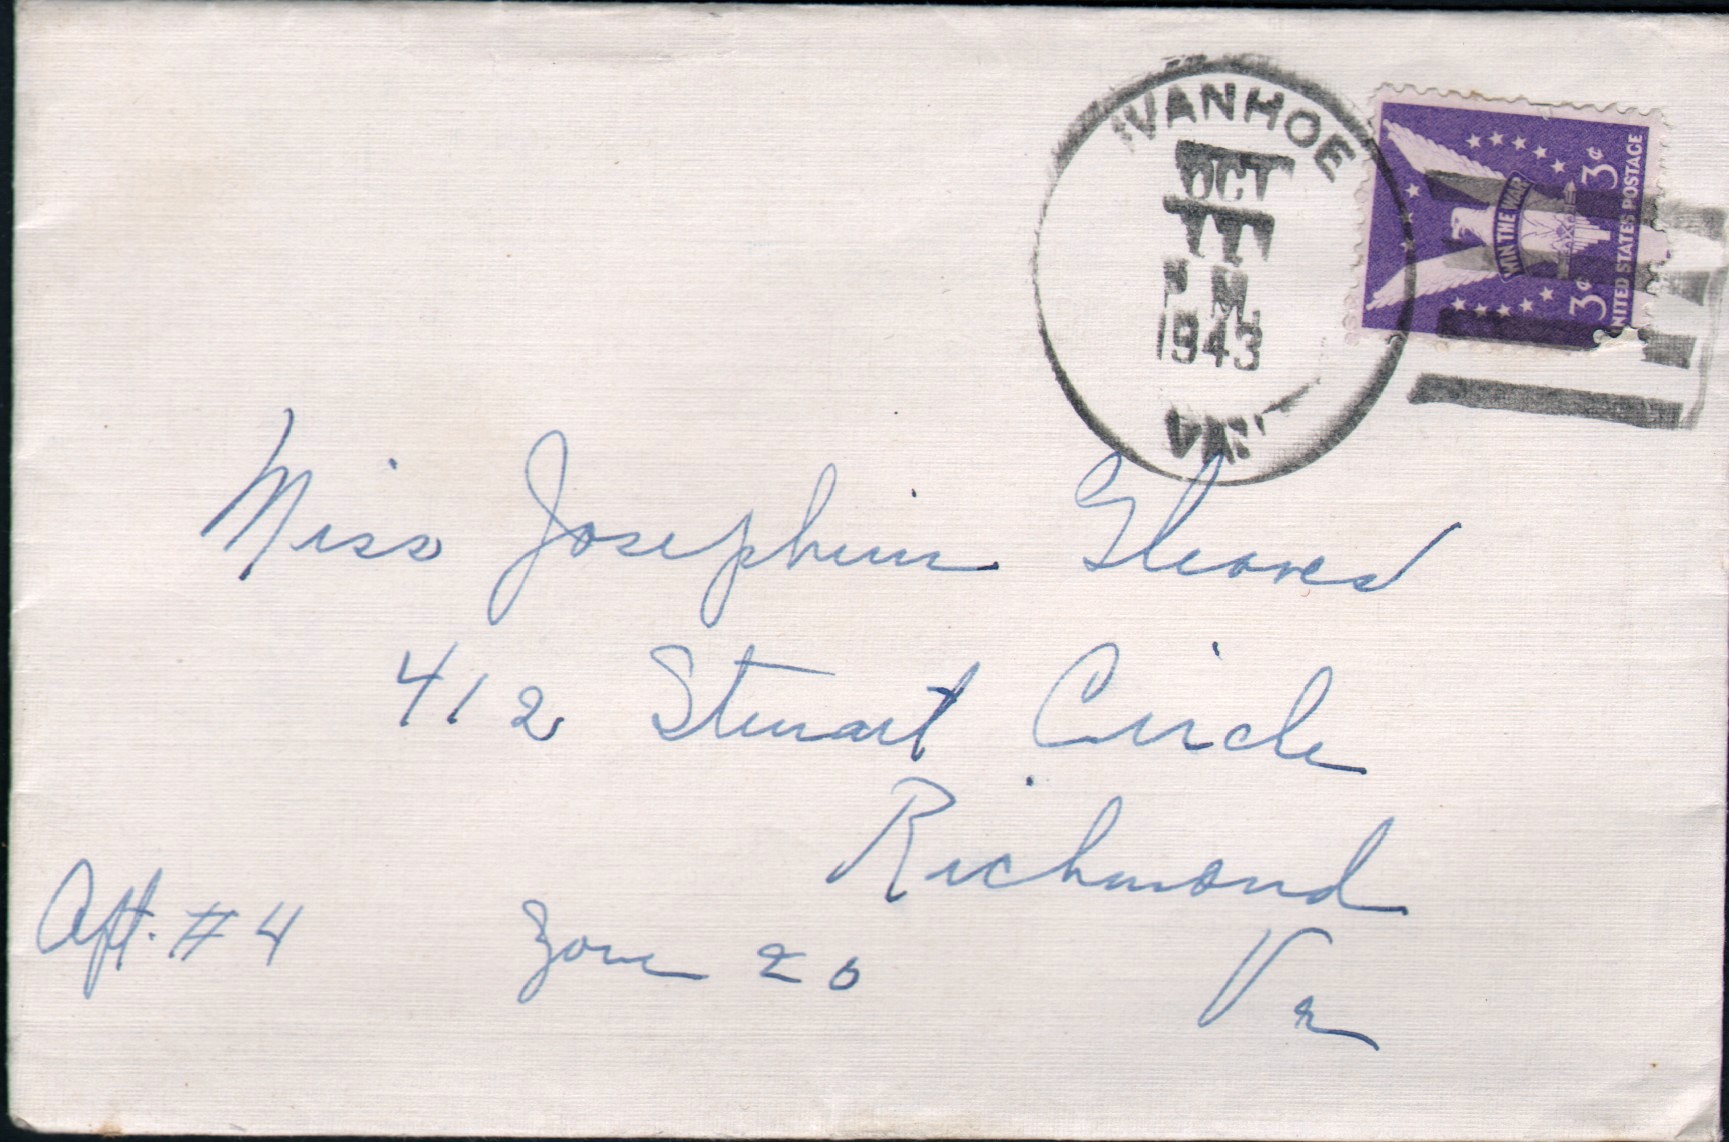 IVANHOE
OCT
11
P M
1943
VA.
WIN THE WAR
3¢ 3¢
UNITED STATES POSTAGE
Miss Josephine Gleaves
412 Stuart Circle
Richmond
Apt. #4 Zone 20 Va